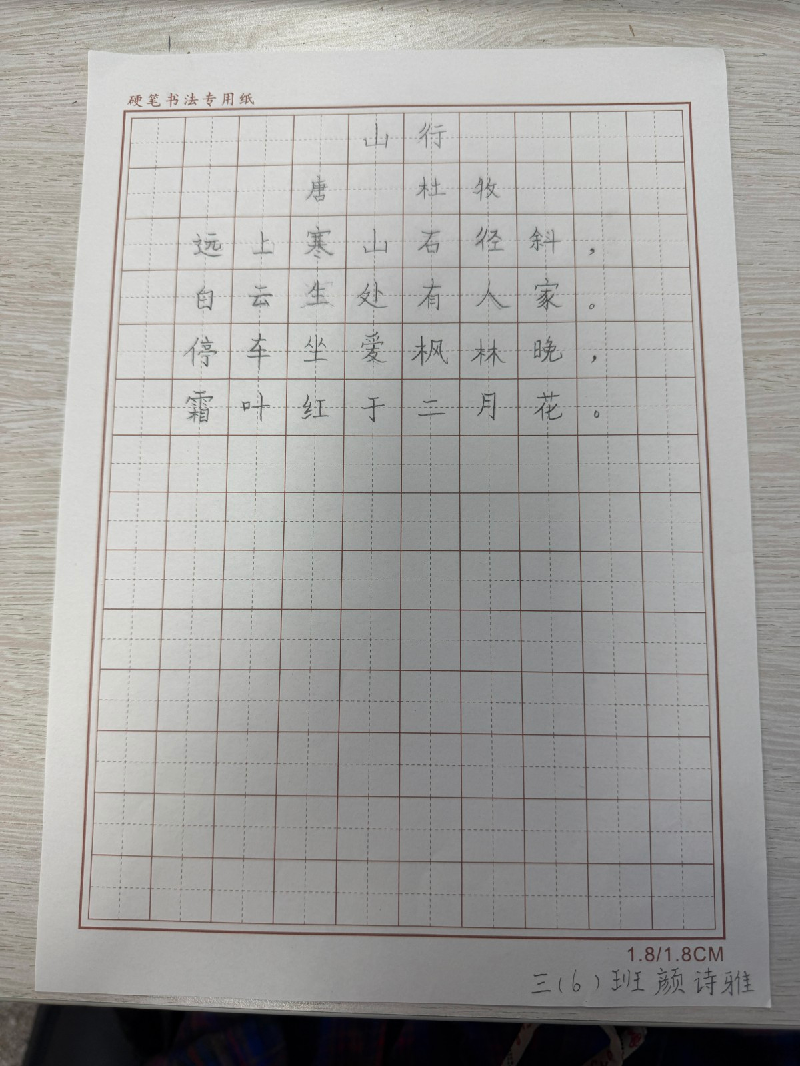 硬笔书法专用纸
山行
唐 杜牧
远上寒山石径斜，
白云生处有人家。
停车坐爱枫林晚，
霜叶红于二月花。
1.8/1.8CM
三（6）班颜诗雅